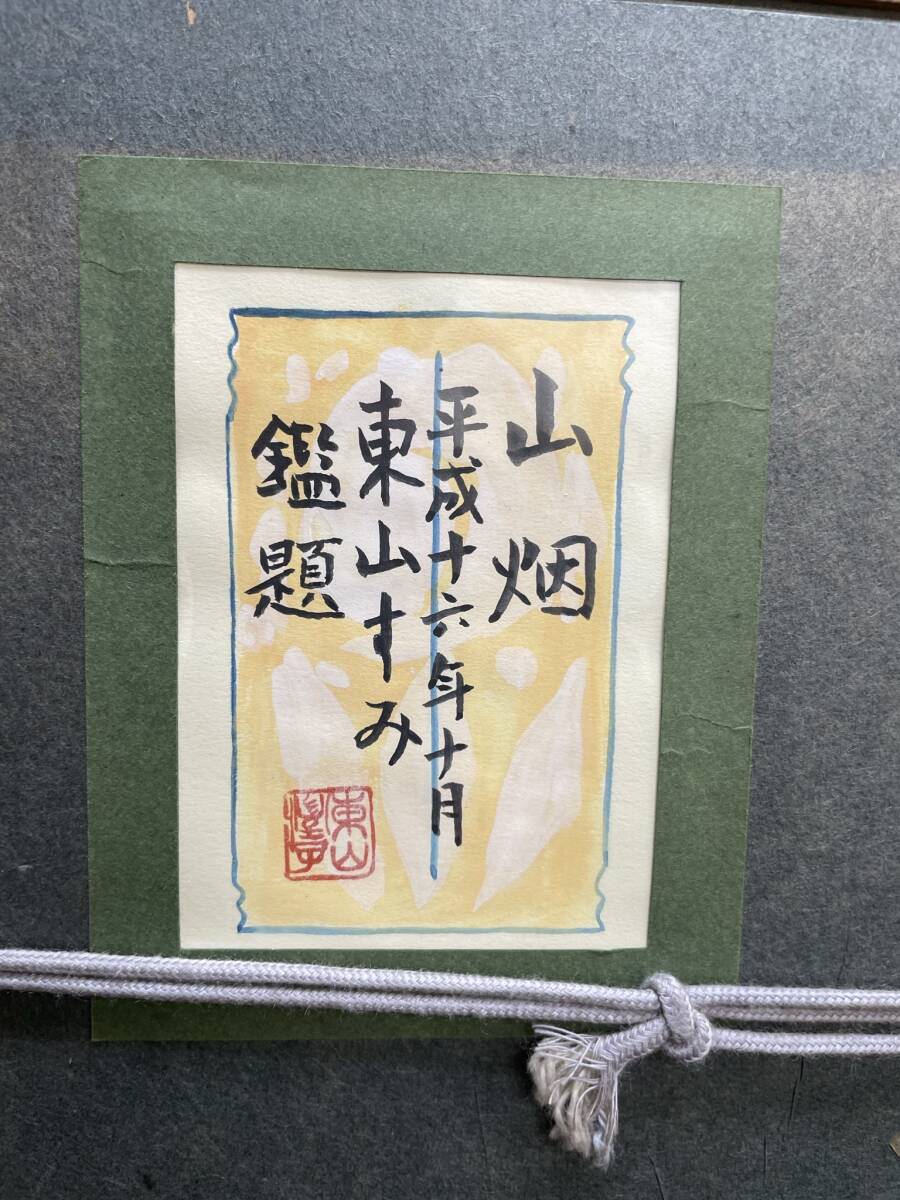 山烟
平成十六年十月
東山すみ
鑑題
東山